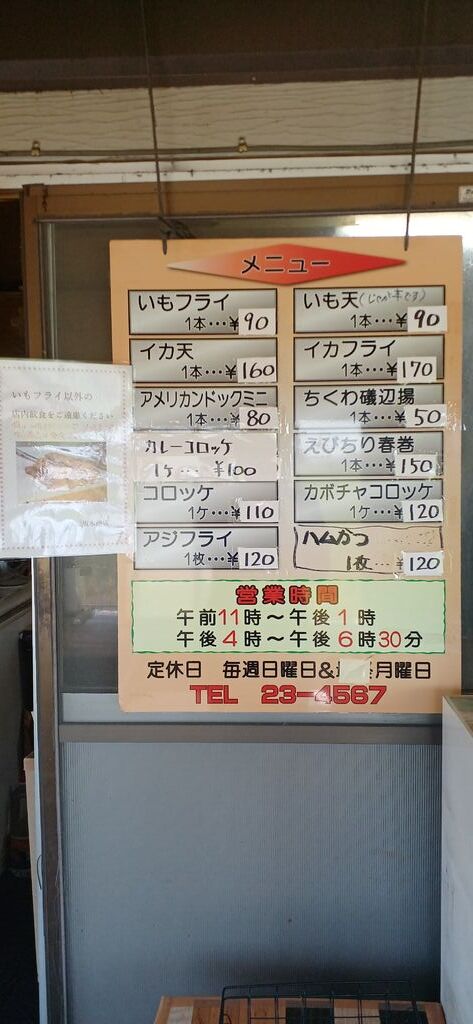 メニュー
いもフライ
1本…￥90
イカ天
1本…￥160
アメリカンドックミニ
1本…￥80
カレーコロッケ
1ケ…￥100
コロッケ
1ケ…￥110
アジフライ
1枚…￥120
いも天(じゃが芋です)
1本…￥90
イカフライ
1本…￥170
ちくわ磯辺揚
1本…￥50
えびちり春巻
1本…￥150
カボチャコロッケ
1ケ…￥120
ハムかつ
1枚…￥120
営業時間
午前11時～午後1時
午後4時～午後6時30分
定休日 毎週日曜日& 月曜日
TEL 23-4567
いもフライ以外の
店内飲食をご遠慮ください